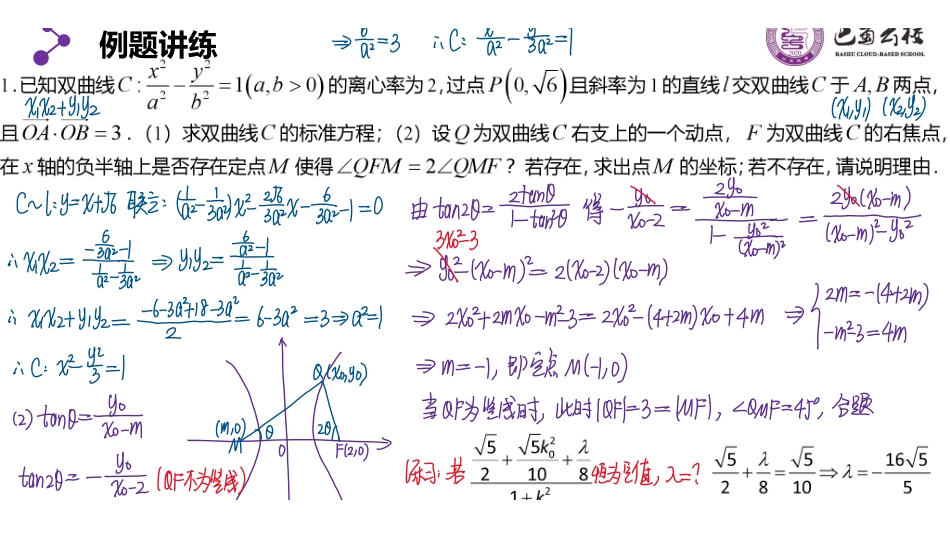 例题讲练
⇒b²/a²=3 ∴C: x²/a² - y²/3a² =1
巴蜀云校
BASHU CLOUD-BASED SCHOOL
1.已知双曲线 C: x²/a² - y²/b² =1(a,b>0) 的离心率为 2,过点 P(0, √6) 且斜率为 1 的直线 l 交双曲线 C 于 A, B 两点,
x₁x₂+y₁y₂ (x₁,y₁) (x₂,y₂)
且 OA·OB=3.(1)求双曲线 C 的标准方程;(2)设 Q 为双曲线 C 右支上的一个动点, F 为双曲线 C 的右焦点,
在 x 轴的负半轴上是否存在定点 M 使得 ∠QFM=2∠QMF?若存在,求出点 M 的坐标;若不存在,请说明理由.
C~l: y=x+√6 联立: (1/a² - 1/3a²)x² - 2√6/3a² x - 6/3a² -1=0
∴x₁x₂= (-6/3a² -1)/(1/a² - 1/3a²) ⇒ y₁y₂= (6/a² -1)/(1/a² - 1/3a²)
∴x₁x₂+y₁y₂= (-6-3a²+18-3a²)/2 =6-3a²=3⇒a²=1
∴C: x² - y²/3 =1
(2) tanθ= y₀/(x₀-m)
tan2θ= - y₀/(x₀-2) (QF不为竖线)
Q(x₀,y₀)
(m,0)
M θ 0 2θ F(2,0)
由 tan2θ= 2tanθ/(1-tan²θ) 得 - y₀/(x₀-2) = (2y₀/(x₀-m))/(1 - y₀²/(x₀-m)²) = 2y₀(x₀-m)/((x₀-m)²-y₀²)
3x₀²-3
⇒ y₀²-(x₀-m)²=2(x₀-2)(x₀-m)
⇒ 2x₀²+2mx₀-m²-3=2x₀²-(4+2m)x₀+4m ⇒ {2m=-(4+2m)
-m²-3=4m
⇒m=-1, 即定点M(-1,0)
当QF为竖线时, 此时|QF|=3=|MF|, ∠QMF=45°, 合题
练习: 若 (√5/2 + √5k₀²/10 + λ/8)/(1+k²) 恒为定值, λ=? √5/2 + λ/8 = √5/10 ⇒ λ = - 16√5/5